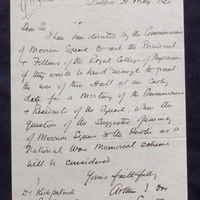 Dublin 21 May 192
Dear Sir
I have been directed by the Commissioners
of Merrion Square to ask the President
& Fellows of the Royal College of Physicians
if they would be kind enough to grant
the use of their Hall at an early
date for a meeting of the Commissioners
& Residents of the Square, when the
question of the suggested opening
of Merrion Square to the Public as a
National War Memorial scheme
will be considered
Yours faithfully
Dr Kirkpatrick Arthur